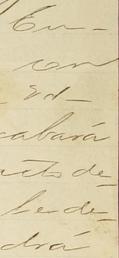 En-
on
Ed-
cabará
cto de-
le de-
drá